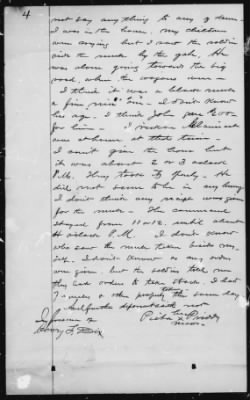 4
not say any thing to any of them
I was in the house. my children
were crying but I saw the soldier
ride the mule by the gate. He
was alone going toward the big
road, when the wagons were -
I think it was a black mule
a fine one - I don't know
his age. I think John gave $200
for him -
at home at that time.
I can't give the hour but
it was about 2 or 3 o'clock
P.M. They took it openly. - He
did not seem to be in any hurry
I don't think any receipt was given
for the mule. - The command
stayed from 11 or 12. until about
4 o'clock P.M. I don't know
who saw the mule taken besides my-
self. I don't know as any orders
were given. but the soldier told me
they had orders to take stock. I had
7 mules & other property taken the same day.
and further deponent saith not
her
x
mark
In presence of